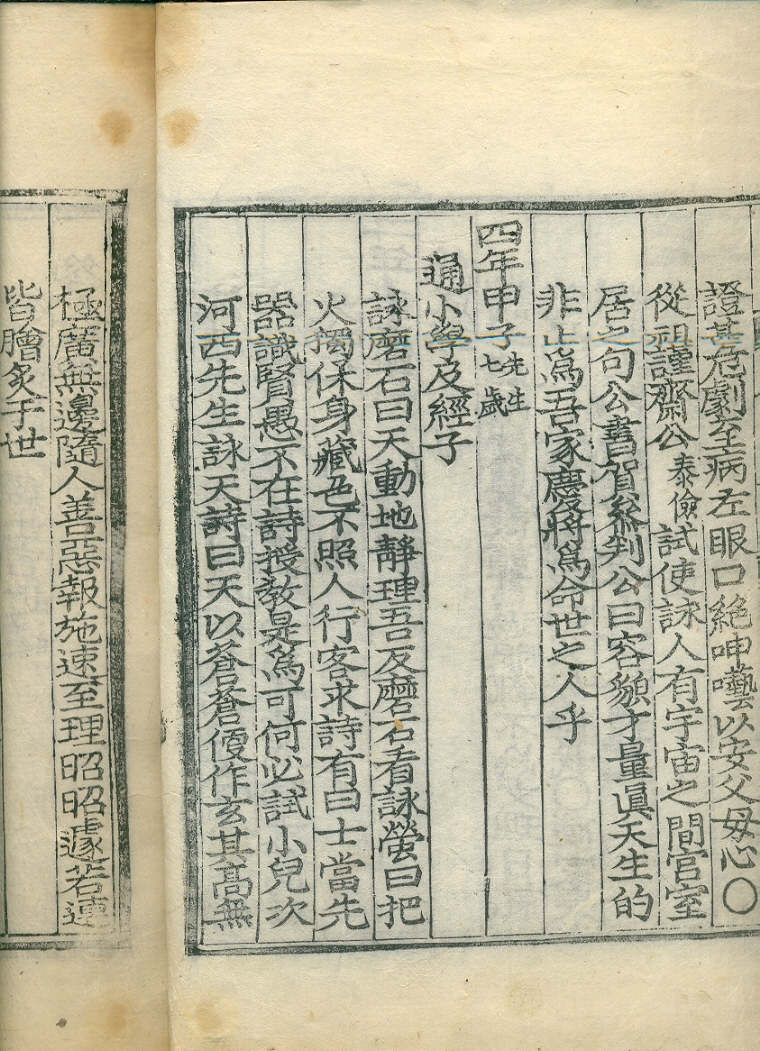 證甚危劇至病左眼口絶呻囈以安父母心〇
從祖謹齋公泰儉試使詠人有宇宙之間宮室
居之句公書賀叅判公曰容貌才量眞天生的
非止爲吾家慶後將爲命世之人乎
四年甲子先生七歲
通小學及經子
詠磨石曰天動地靜理吾反磨石看詠螢曰把
火獨休身藏色不照人行客求詩有曰士當先
器識賢愚不在詩授敎是爲可何必試小兒次
河西先生詠天詩曰天以蒼蒼優作玄其高無
極廣無邊隨人善惡報施速至理昭昭遽若連
皆膾炙于世